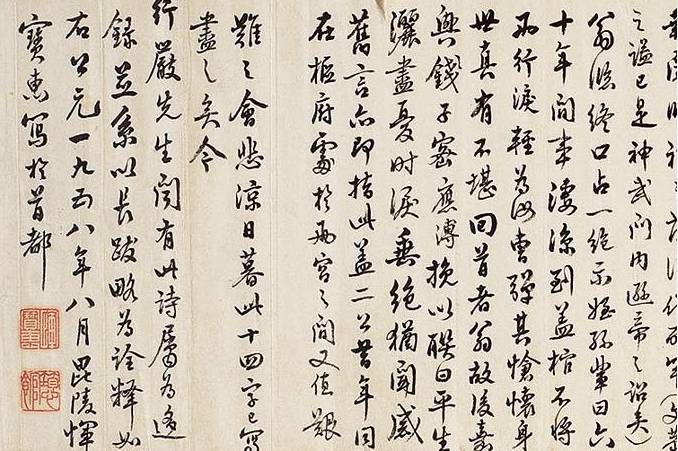 百年(文恭
之謚已是神武門內遜帝之詔矣)
翁臨終口占一絕示姪孫輩曰六
十年間事淒涼到蓋棺不將
兩行淚輕為汝曹彈其愴懷身
世真有不堪回首者翁故後嘉
興錢子密應溥挽以聯曰平生
灑盡憂時淚垂絕猶聞感
舊言亦即指此蓋二公昔年同
在樞府處於兩宮之間又值艱
難之會悲涼日暮此十四字已寫
盡之矣今
行嚴先生聞有此詩屬為迻
錄並系以長跋略為詮釋如
右公元一九五八年八月毘陵惲
寶惠寫於首都